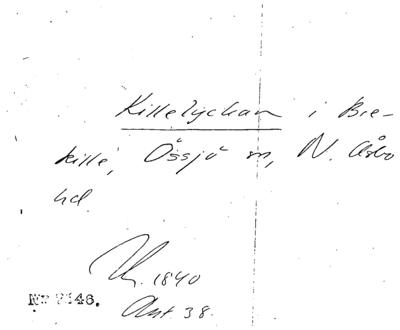 Killelyckan i Bre-
kille, Össjö sn, N. Åsbo
hd
K. 1840
Ant. 38.
46.